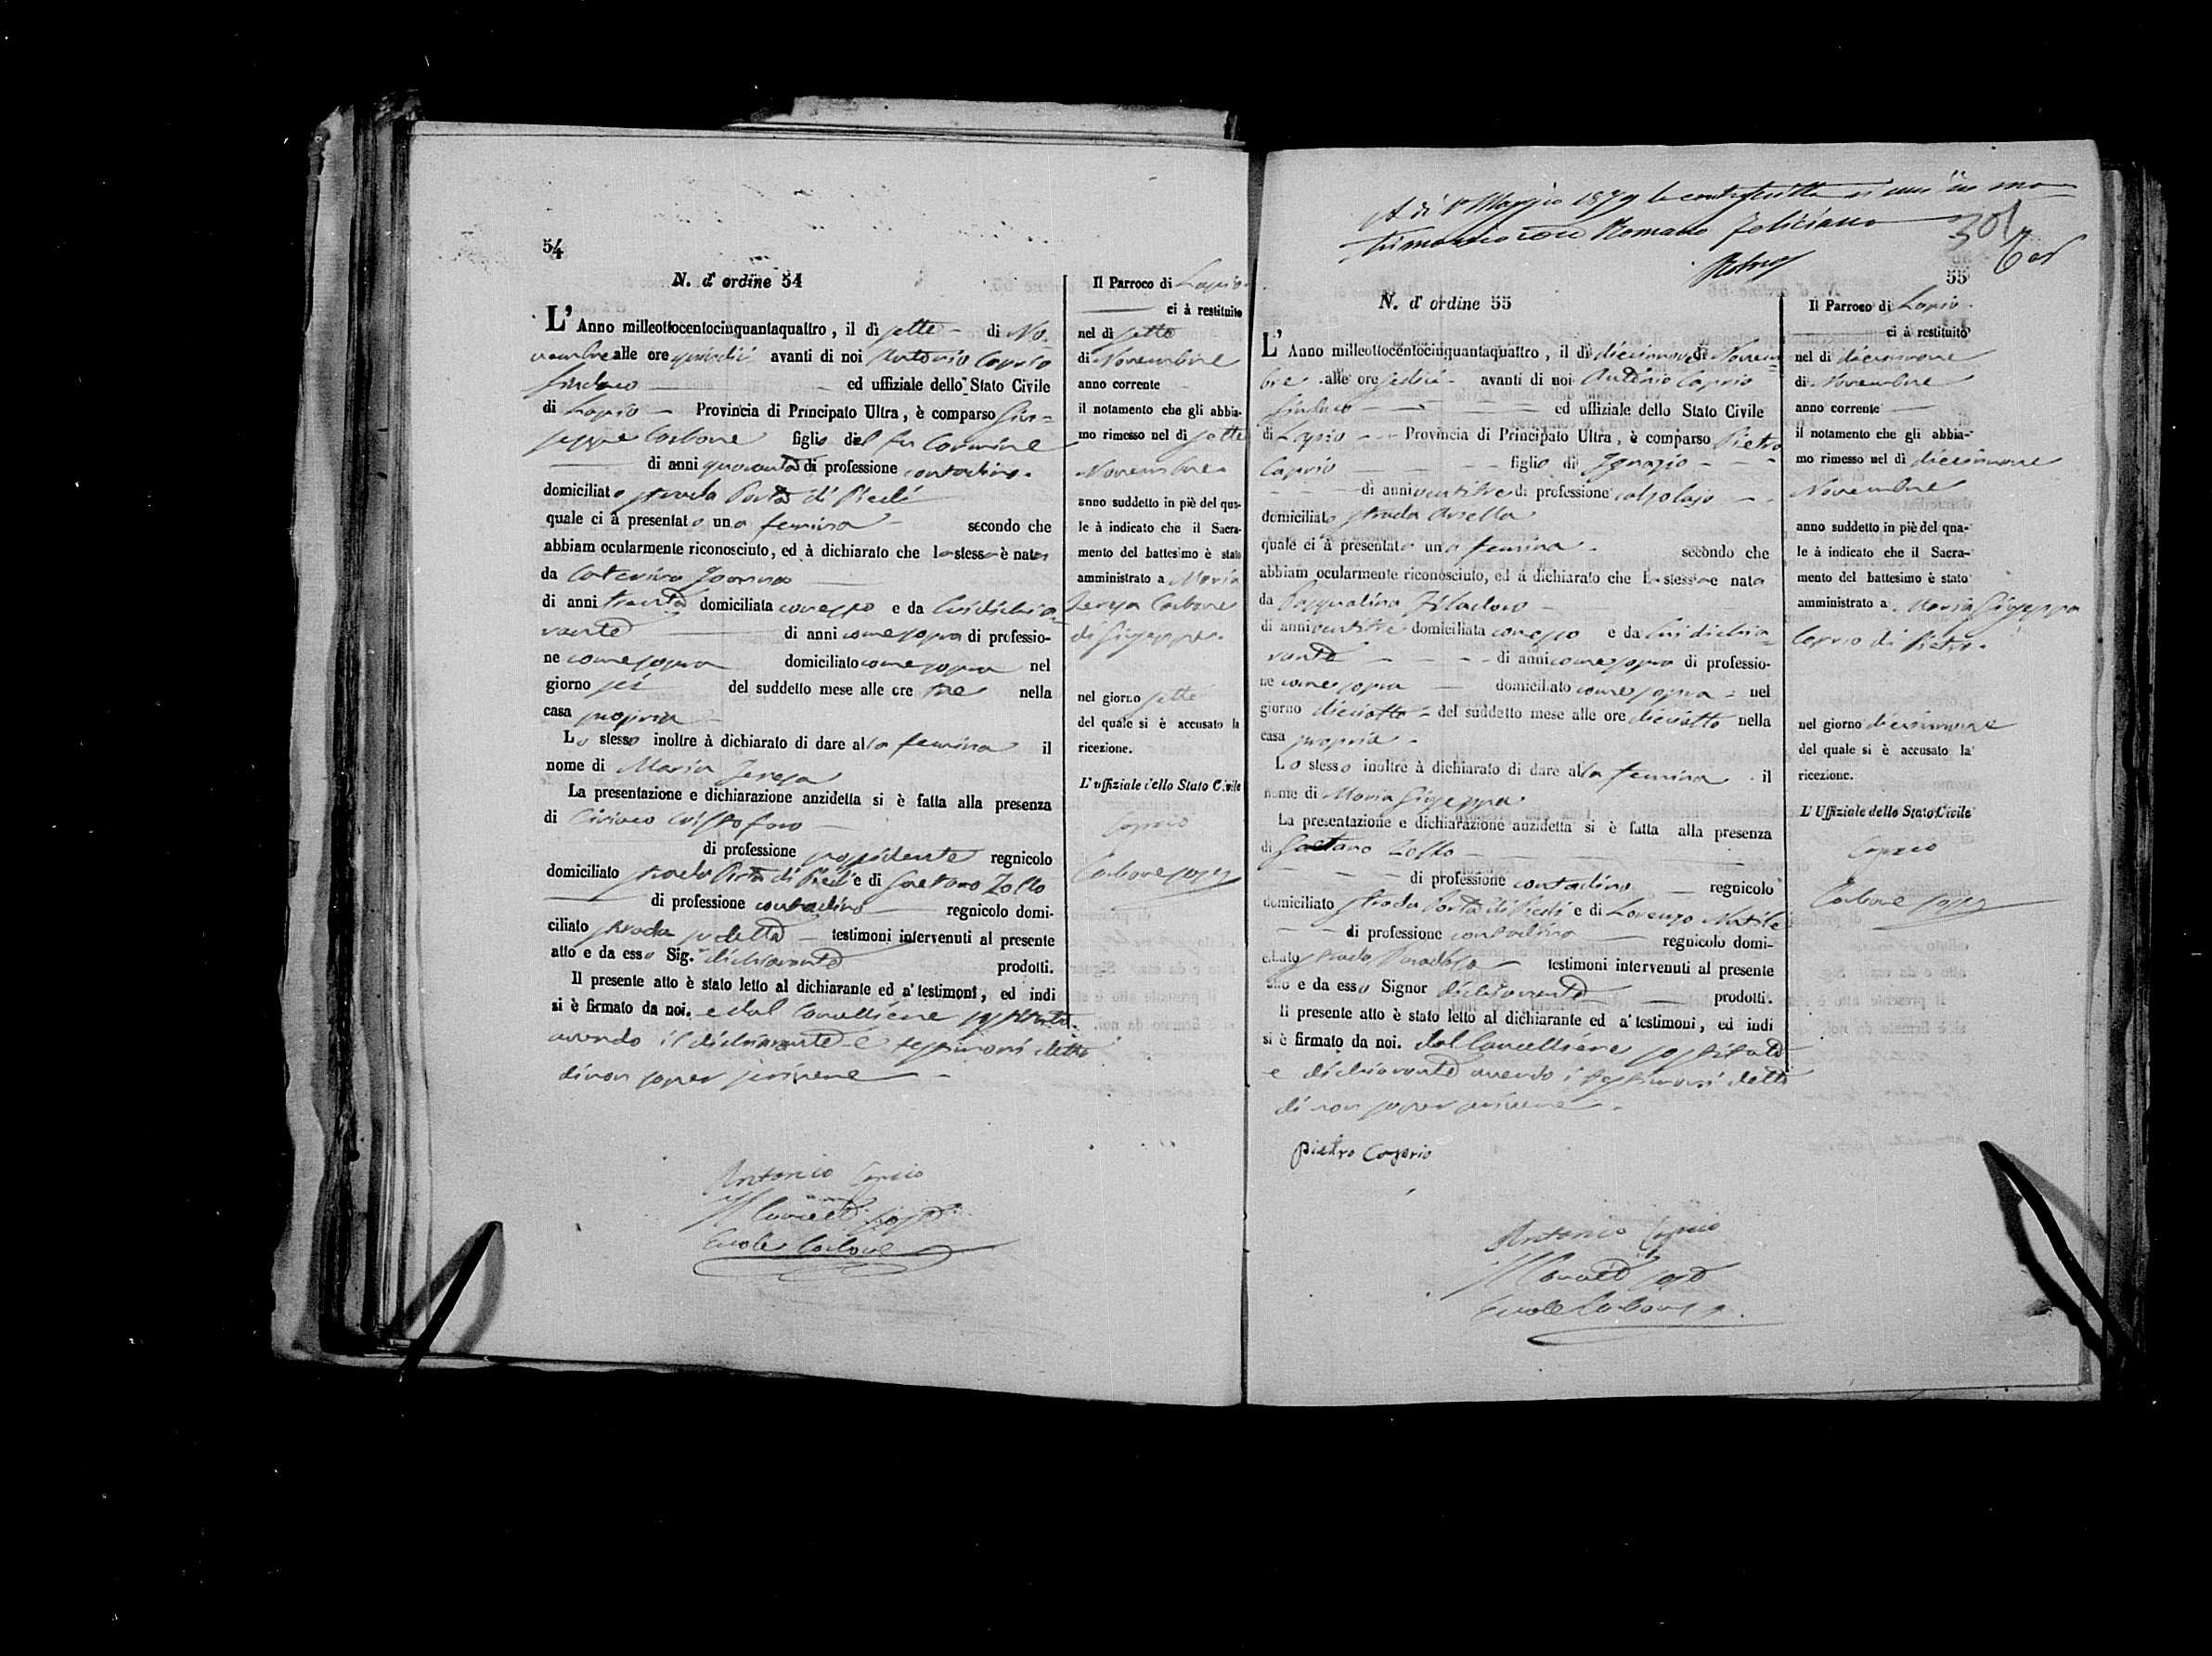 54
N. d' ordine 54
L' Anno milleottocentocinquantaquattro, il dì sette - di No-
vembre alle ore quindici avanti di noi Antonio Caprio
Sindaco ed uffiziale dello Stato Civile
di Lapio - Provincia di Principato Ultra, è comparso Giu-
seppe Carbone figlio del fu Carmine
di anni quaranta di professione contadino.
domiciliato strada Porta di Piedi
quale ci à presentato una femina - secondo che
abbiam ocularmente riconosciuto, ed à dichiarato che la stessa è nata
da Caterina
di anni trenta domiciliata con esso e da lui dichia-
rante di anni come sopra di professio-
ne come sopra domiciliato come sopra nel
giorno sei del suddetto mese alle ore tre nella
casa propria -
Lo stesso inoltre à dichiarato di dare alla femina il
nome di Maria Teresa
La presentazione e dichiarazione anzidetta si è fatta alla presenza
di Ciriaco Cristofaro -
di professione possidente regnicolo
domiciliato strada Porta di Piedi e di Gaetano Zollo
di professione contadino regnicolo domi-
ciliato strada sudetta - testimoni intervenuti al presente
atto e da esso Sig. dichiarante prodotti.
Il presente atto è stato letto al dichiarante ed a' testimonî, ed indi
si è firmato da noi. e dal Cancelliere sostituto.
avendo il dichiarante e testimoni detto
di non saper scrivere -
Antonio Caprio
Il Cancell. sost.
Ercole Carbone
Il Parroco di Lapio.
ci à restituito
nel dì sette
di Novembre
anno corrente
il notamento che gli abbia-
mo rimesso nel dì sette
Novembre.
anno suddetto in piè del qua-
le à indicato che il Sacra-
mento del battesimo è stato
amministrato a Maria
Teresa Carbone
di Giuseppe.
nel giorno sette
del quale si è accusato la
ricezione.
L'uffiziale dello Stato Civile
Caprio
Carbone sost.
A dì 1º Maggio 1879 la contrascritta si unì in ma-
trimonio con Romano Feliciano
55
N. d' ordine 55
L' Anno milleottocentocinquantaquattro, il dì diecinnove di Novem-
bre alle ore sedici - avanti di noi Antonio Caprio
Sindaco ed uffiziale dello Stato Civile
di Lapio - Provincia di Principato Ultra, è comparso Pietro
Caprio figlio di Ignazio
di anni ventitre di professione calzolajo
domiciliato strada
quale ci à presentato una femina. secondo che
abbiam ocularmente riconosciuto, ed à dichiarato che la stessa è nata
da Pasqualina Filadoro -
di anni ventitre domiciliata con esso e da lui dichia-
rante di anni come sopra di professio-
ne come sopra domiciliato come sopra - nel
giorno dieciotto - del suddetto mese alle ore dieciotto nella
casa propria -
Lo stesso inoltre à dichiarato di dare alla femina il
nome di Maria Giuseppa
La presentazione e dichiarazione anzidetta si è fatta alla presenza
di Gaetano Zollo
di professione contadino regnicolo
domiciliato strada Porta di Piedi e di Lorenzo
di professione contadino regnicolo domi-
ciliato strada testimoni intervenuti al presente
atto e da esso Signor dichiarante prodotti.
Il presente atto è stato letto al dichiarante ed a' testimoni, ed indi
si è firmato da noi. dal Cancelliere sostituto
e dichiarante avendo i testimoni detto
di non saper scrivere.
Pietro Caprio
Antonio Caprio
Il Cancell. sost.
Ercole Carbone
Il Parroco di Lapio.
ci à restituito
nel dì diecinnove
di Novembre
anno corrente
il notamento che gli abbia-
mo rimesso nel dì diecinnove
Novembre
anno suddetto in piè del qua-
le à indicato che il Sacra-
mento del battesimo è stato
amministrato a Maria Giuseppa
Caprio di Pietro.
nel giorno diecinnove
del quale si è accusato la
ricezione.
L'Uffiziale dello Stato Civile
Caprio
Carbone sost.